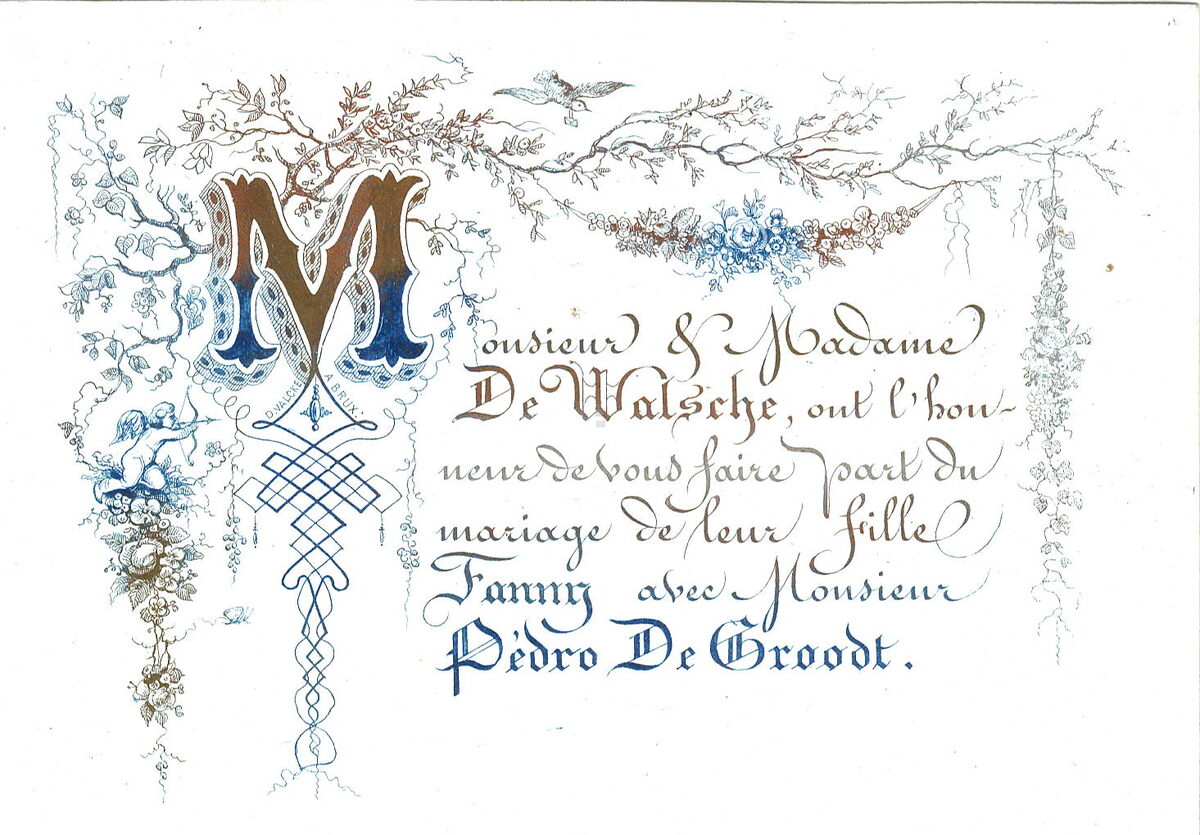 Monsieur & Madame
De Walsche, ont l'hon-
neur de vous faire part du
mariage de leur fille
Fanny avec Monsieur
Pédro De Groodt.
D. VALCKE A BRUX.